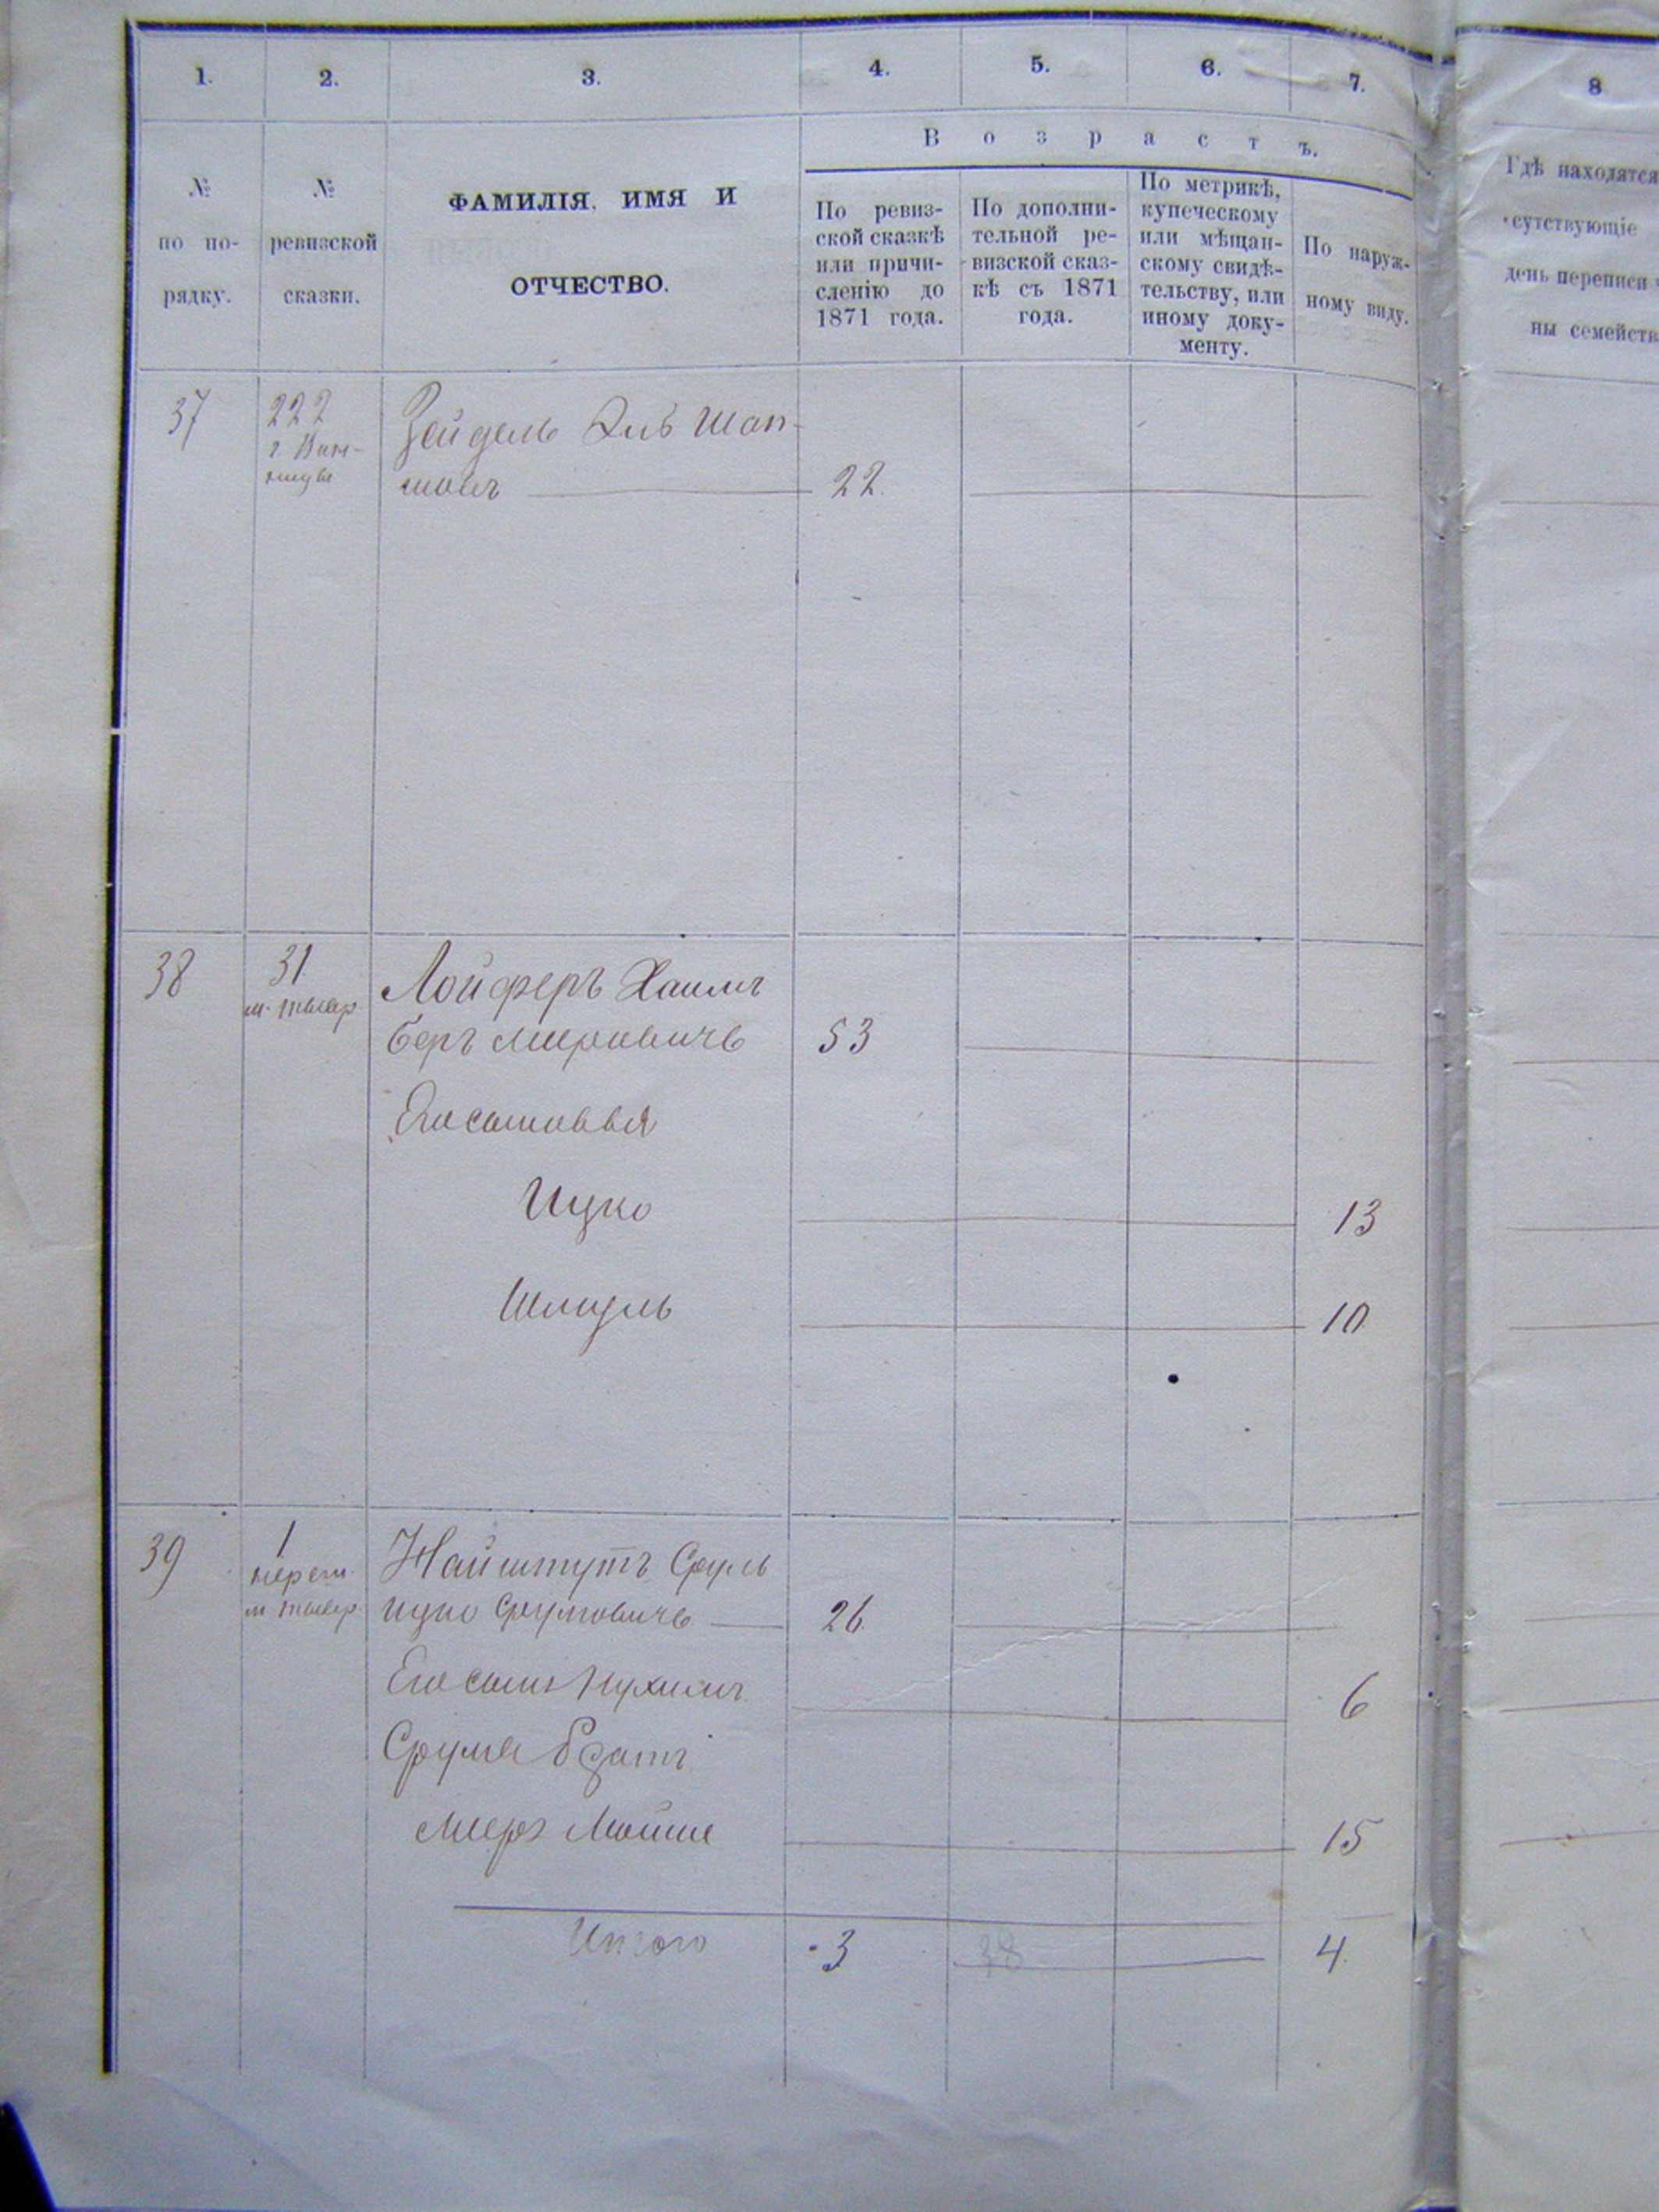 1. 2. 3. 4. 5. 6. 7. 8
Возрастъ.
№ по по-
рядку.
№
ревизской
сказки.
ФАМИЛІЯ, ИМЯ И
ОТЧЕСТВО.
По ревиз-
ской сказкѣ
или причи-
сленію до
1871 года.
По дополни-
тельной ре-
визской сказ-
кѣ съ 1871
года.
По метрикѣ,
купеческому
или мѣщан-
скому свидѣ-
тельству, или
иному доку-
менту.
По наруж-
ному виду.
Гдѣ находятся
сутствующіе
день переписи
ны семейств
37 222 Зейдель Эль Шап-
г. Вин-
ницы
22.
38 31 Лойферъ Хаимъ
м. Тывер.
Беръ Мерковичъ 53
Его сыновья
Ицко 13
Шмуль 10
39 1 Найштутъ Сруль
м Тывер. Ицко Срулевичъ 26.
Его сынъ Нухимъ 6
Сруля братъ
Мееръ Мошко 15
Итого 3 38 4.